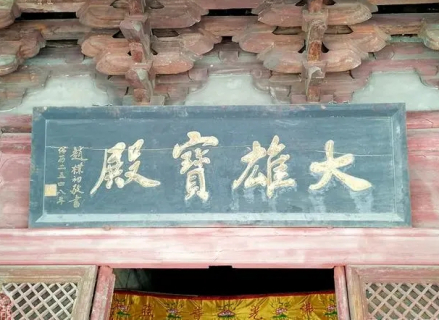 大雄寶殿
趙樸初敬書
佛曆二五四八年